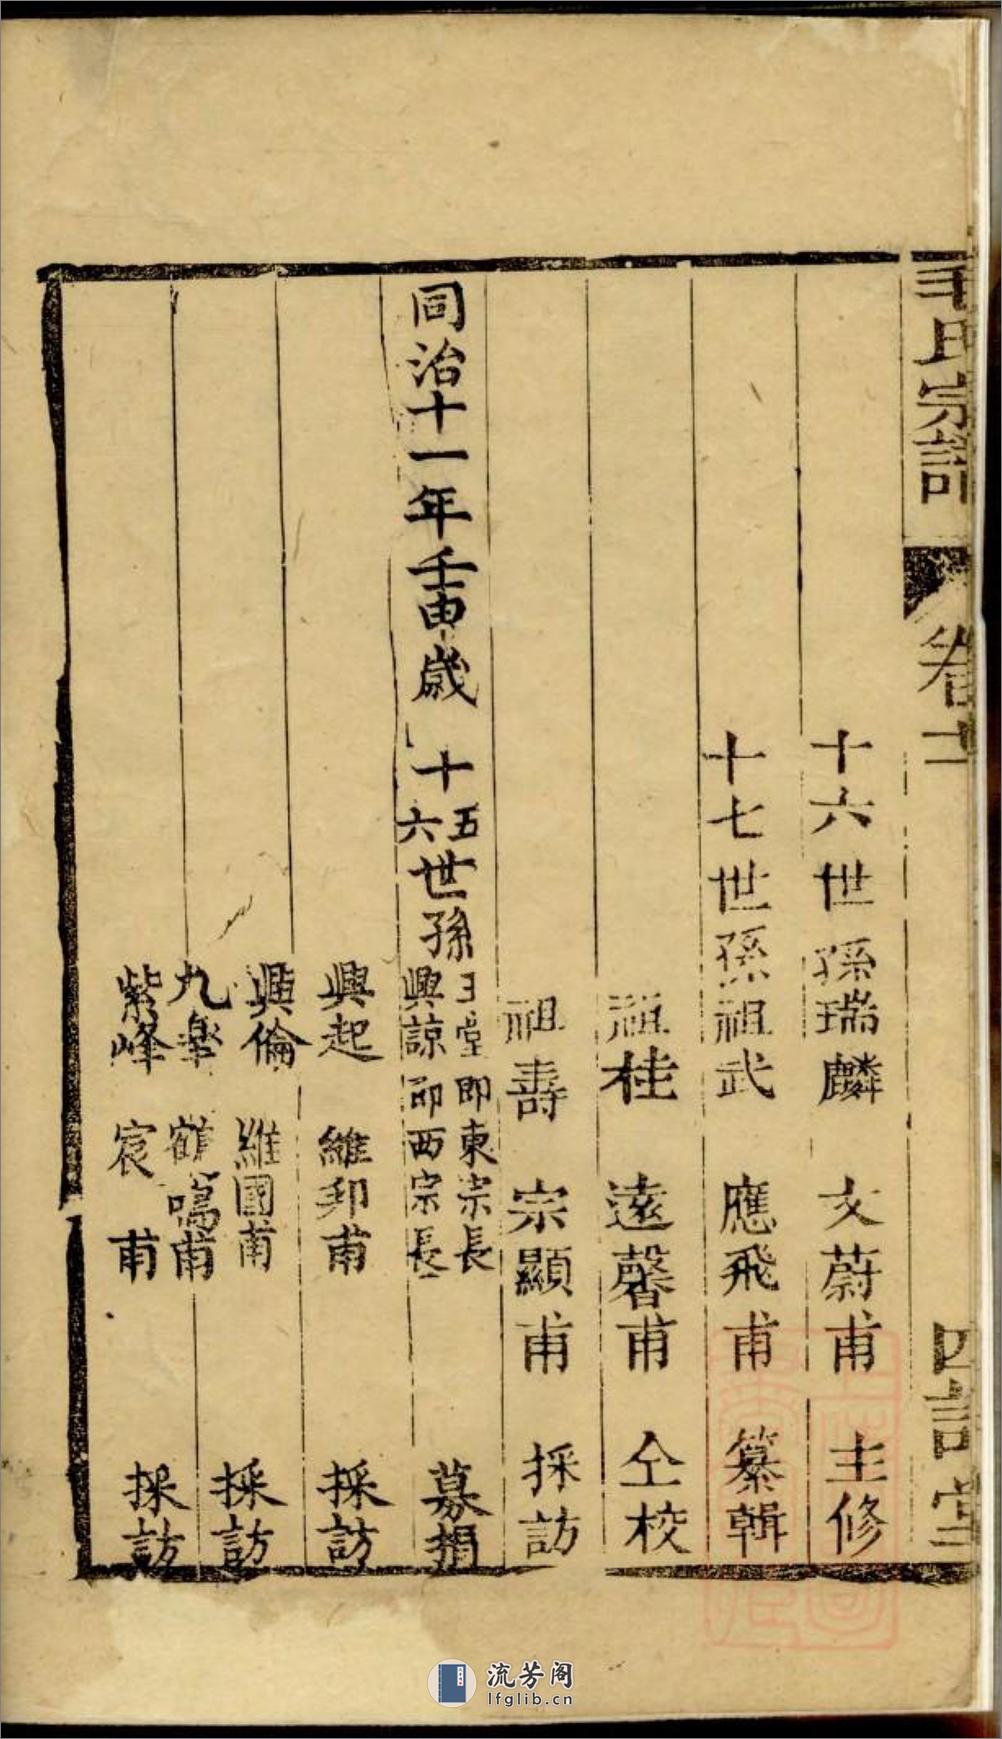 毛氏宗譜
卷十
四詩堂
十六世孫瑞麟 文蔚甫 主修
十七世孫祖武 應飛甫 纂輯
祖桂 遠馨甫 仝校
祖壽 宗顯甫 採訪
同治十一年壬申歲 十五六世孫
玉堂即東宗長
興諒即西宗長
募捐
興起 維邦甫 採訪
興倫 維國甫 採訪
九皋 鶴鳴甫
紫峰 宸甫
採訪
流芳阁
lfglib.cn